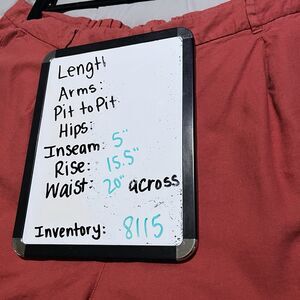 Length
Arms:
Pit to Pit:
Hips:
Inseam: 5"
Rise: 15.5"
Waist: 20" across
Inventory: 8115